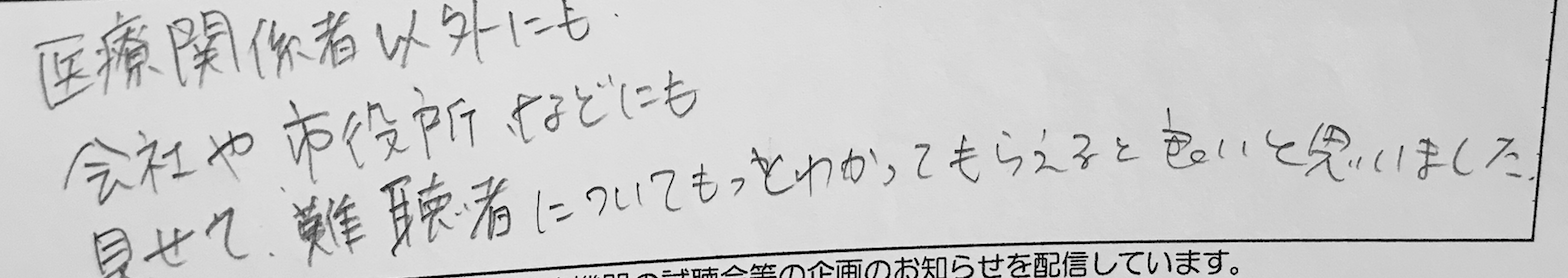 医療関係者以外にも
会社や市役所などにも
見せて、難聴者についてもっとわかってもらえると良いと思いました。
の試聴会等の企画のお知らせを配信しています。